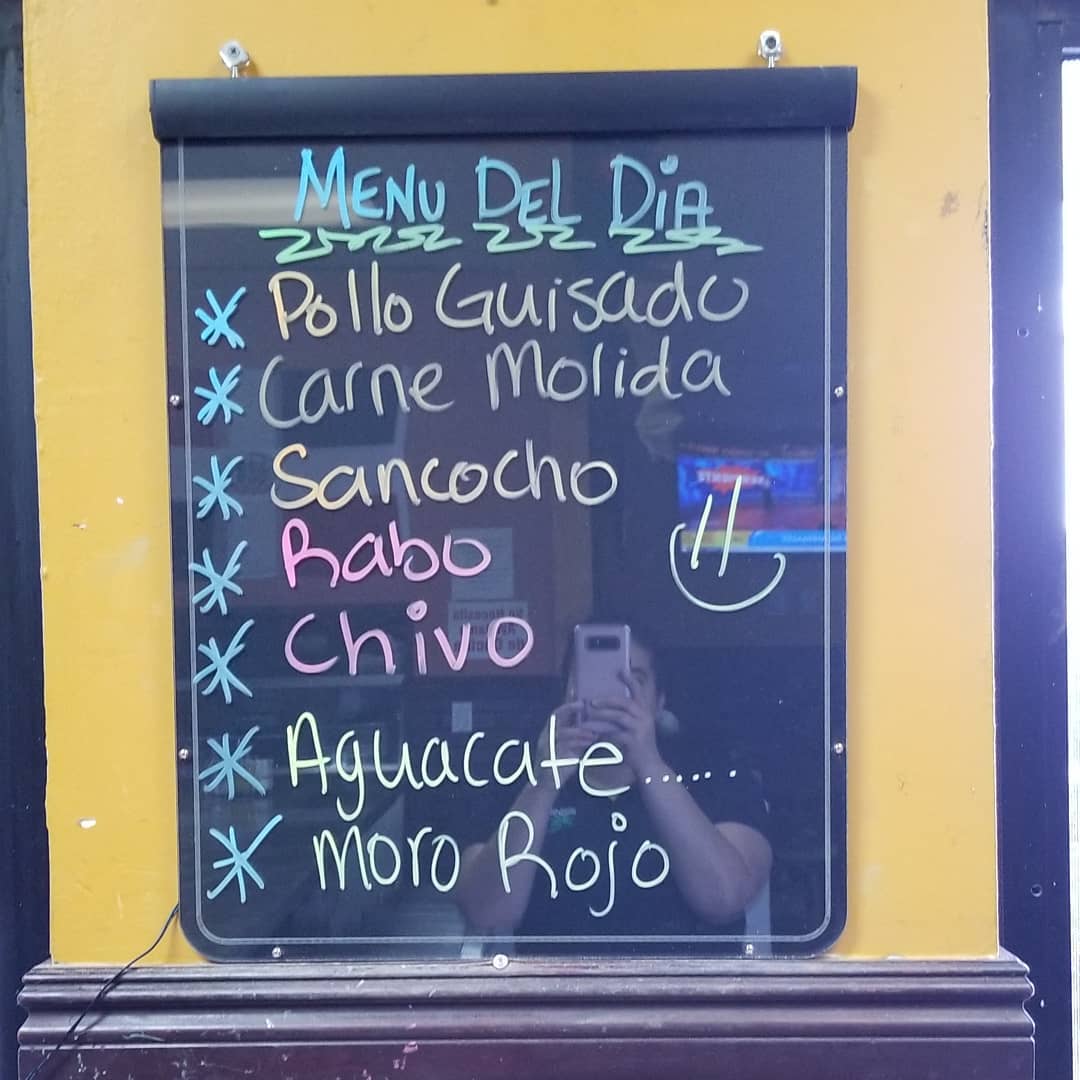 MENU DEL DiA
* Pollo Guisado
* Carne Molida
* Sancocho
* Rabo
* Chivo
* Aguacate......
* Moro Rojo